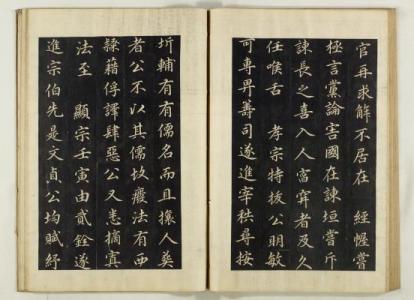 官再求解不居在 經幄嘗
極言黨論害國在諫垣嘗斥
諫長之喜入人富穽者及久
任喉舌 孝宗特拔公明敏
可專畀籌司遂進宰秩尋按
圻輔有有儒名而且搢人奠
者公不以其儒故廢法有西
隸藉俘譯肆惡公又悉摘寘
法至 顯宗壬寅由貳銓遂
進宗伯先是文貞公均賦紓